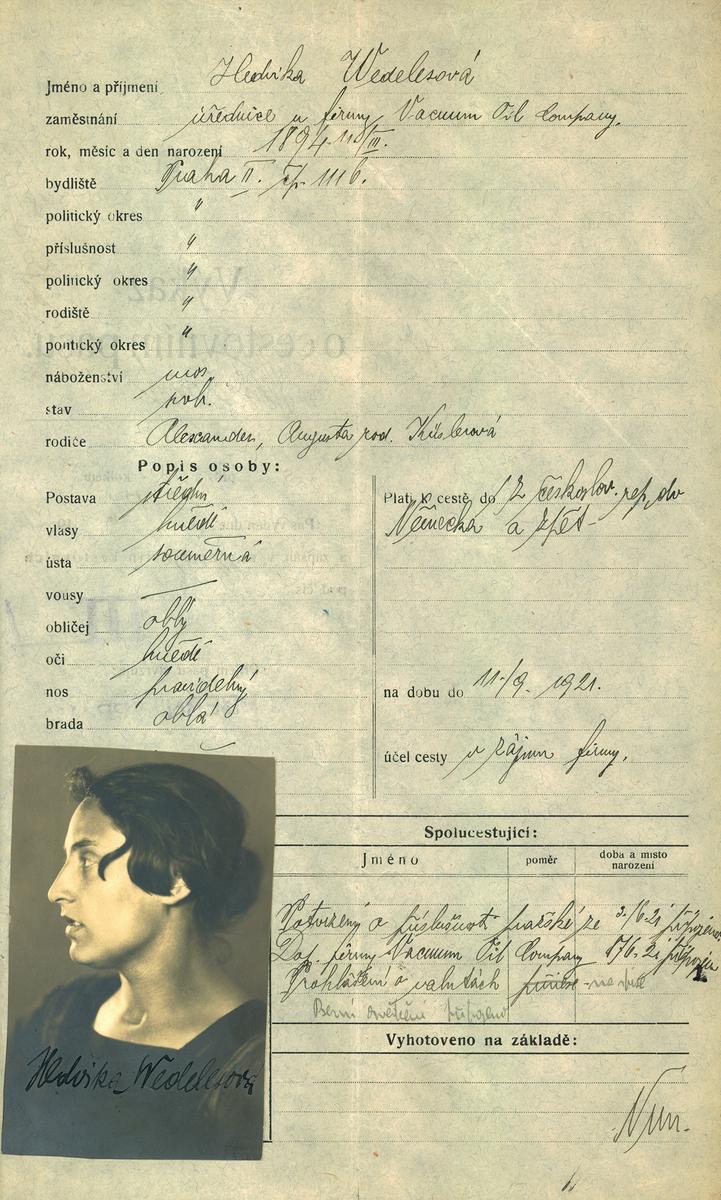 Jméno a příjmení Hedvika Wedelesová
zaměstnání úřednice u firmy Vacuum Oil Company.
rok, měsíc a den narození 1894 /III.
bydliště Praha II. čp. 1116.
politický okres "
příslušnost "
politický okres "
rodiště "
politický okres "
náboženství mos.
stav svob.
rodiče Alexander, Augusta roz.
Popis osoby:
Postava střední
vlasy hnědé
ústa souměrná
vousy —
obličej oblý
oči hnědé
nos pravidelný
brada oblá
Platí k cestě do /z českoslov. rep. do
Německa a zpět
na dobu do 11/9. 1921.
účel cesty v zájmu firmy.
Spolucestující:
Jméno poměr doba a místo narození
Potvrzení o příslušnosti pražské ze 3./6.21 připojeno
Dop. firmy Vacuum Oil Company 21 připojen
Prohlášení o valutách
Berní osvědčení připojeno
Vyhotoveno na základě:
Hedvika Wedelesová